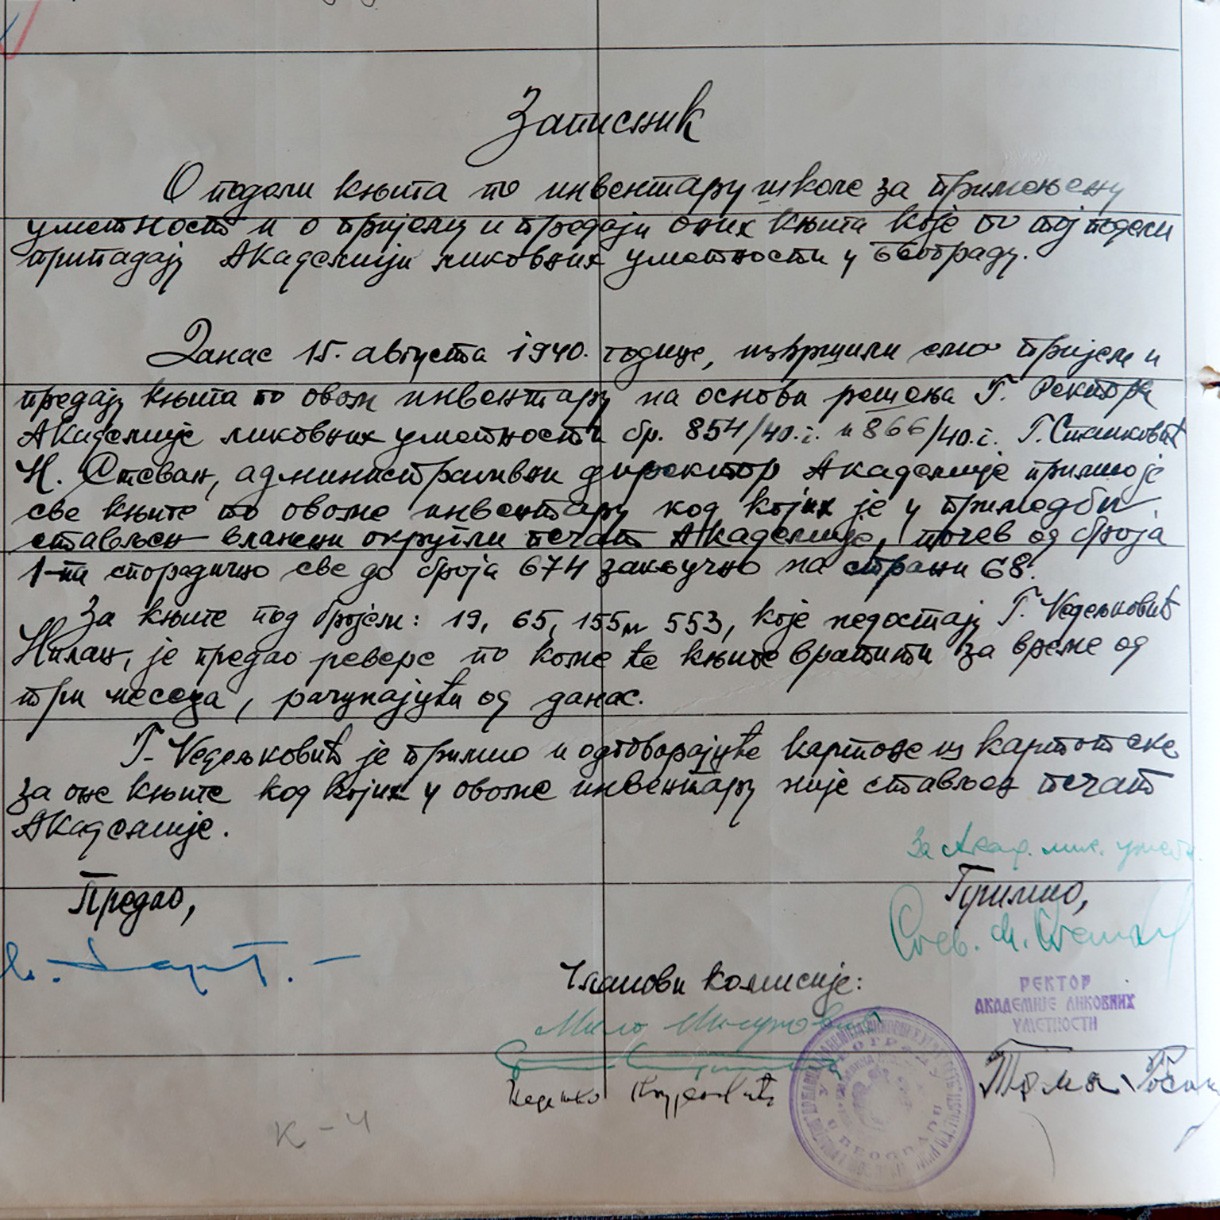 Записник
О подели књига по инвентару школе за примењену
уметност и о пријему и предаји оних књига које по тој подели
припадају Академији ликовних уметности у Београду.
Данас 15. августа 1940. године, извршили смо пријем и
предају књига по овом инвентару на основи решења Г. Ректора
Академије ликовних уметности бр. 854/40.г. и 866/40.г. Г. Станковић
Н. Стеван, административни директор Академије примио је
све књиге по овоме инвентару код којих је у примедби
стављен влажни округли печат Академије, почев од броја
1-ти спорадично све до броја 674 закључно на страни 68.
За књиге под бројем: 19, 65, 155 и 553, које недостају Г. Недељковић
Милан, је предао реверс по коме ће књиге вратити за време од
три месеца, рачунајући од данас.
Г. Недељковић је примио и одговарајуће картоне из картотеке
за оне књиге код којих у овоме инвентару није стављен печат
Академије.
За Акад. лик. умет.
Предао,
Примио,
Стев.
Чланови комисије:
РЕКТОР
АКАДЕМИЈЕ ЛИКОВНИХ
УМЕТНОСТИ
Мило Милуновић
Тома Росандић
К-4